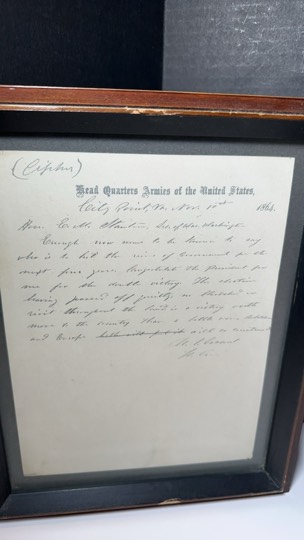 (Cipher)
Head Quarters Armies of the United States,
City Point, Va. Nov. 10th 1864
Hon. E. M. Stanton, Sec. of War Washington
Enough now seems to be known to say
who is to hold the reins of Government for the
next four years. Congratulate the President for
me for the double victory. The election
having passed off quietly, no bloodshed or
riot throughout the land is a victory worth
more to the country than a battle won. Rebeldom
and Europe will so construe it.
U. S. Grant
Lt. Gen.